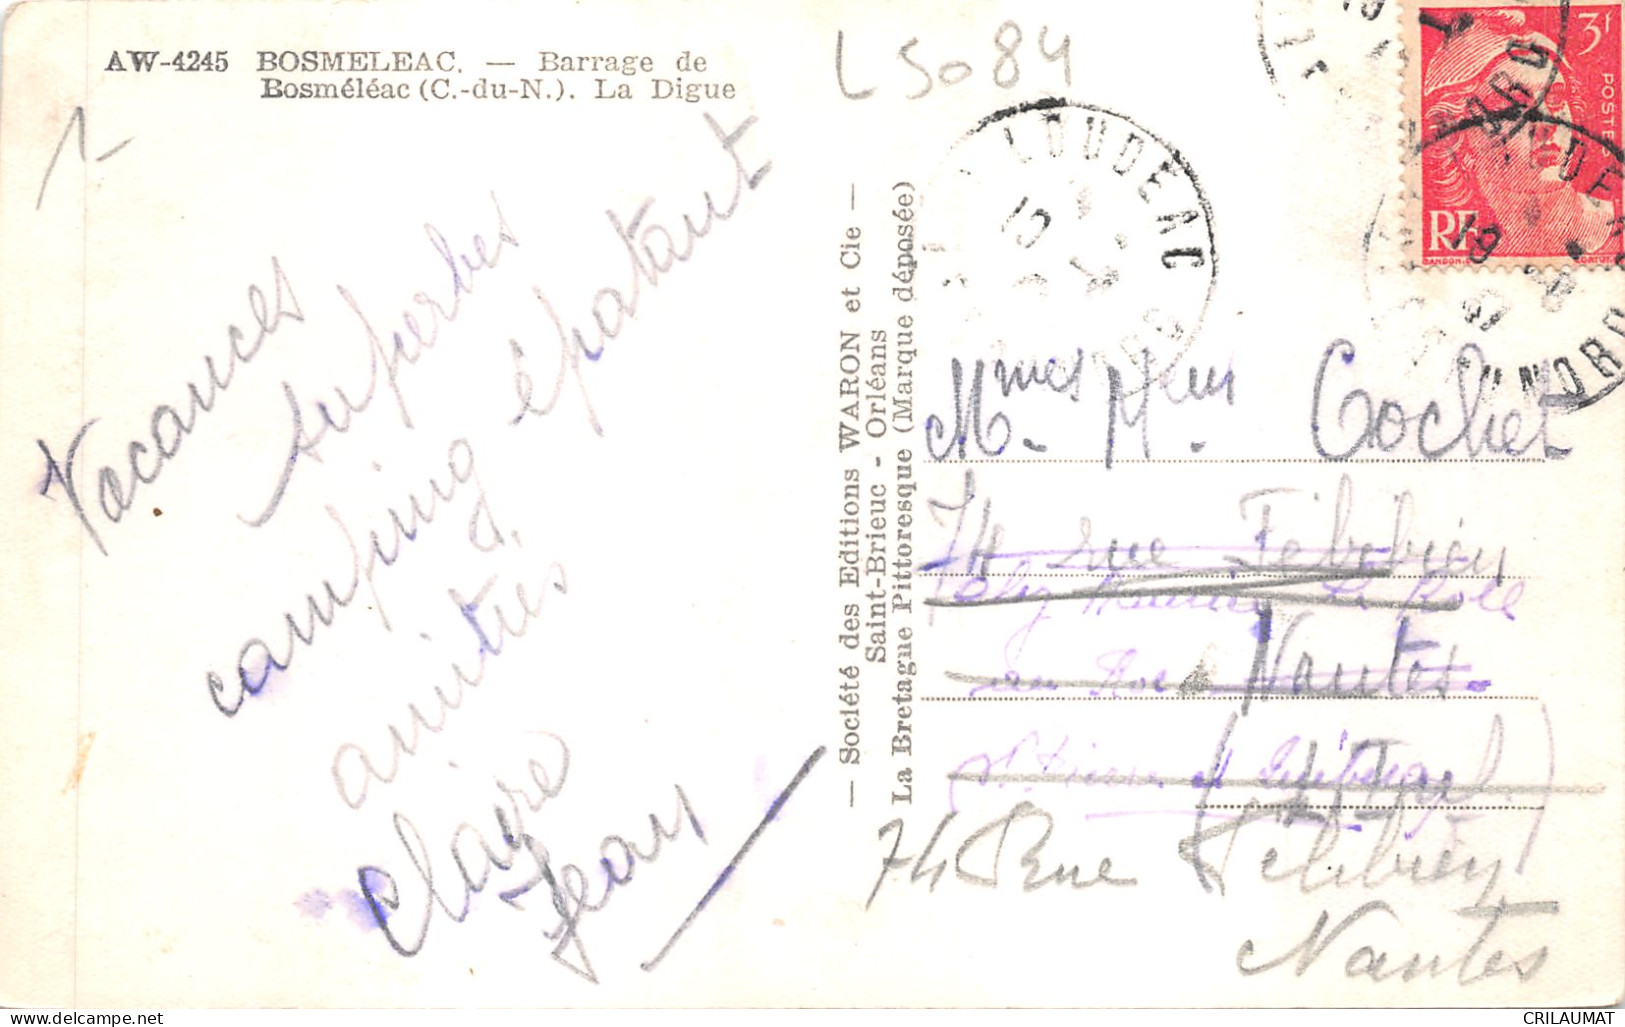 AW-4245 BOSMELEAC. — Barrage de
Bosméléac (C.-du-N.). La Digue
L5084
Vacances
superbes
camping épatant
amitiés
Claire
Jean
— Société des Editions WARON et Cie —
Saint-Brieuc - Orléans
La Bretagne Pittoresque (Marque déposée)
LOUDEAC
3f
POSTES
RF
Mmes Meur Cochet
74 rue Félibien
Nantes
(L. Inf.)
74 Rue Félibien
Nantes
CRILAUMAT